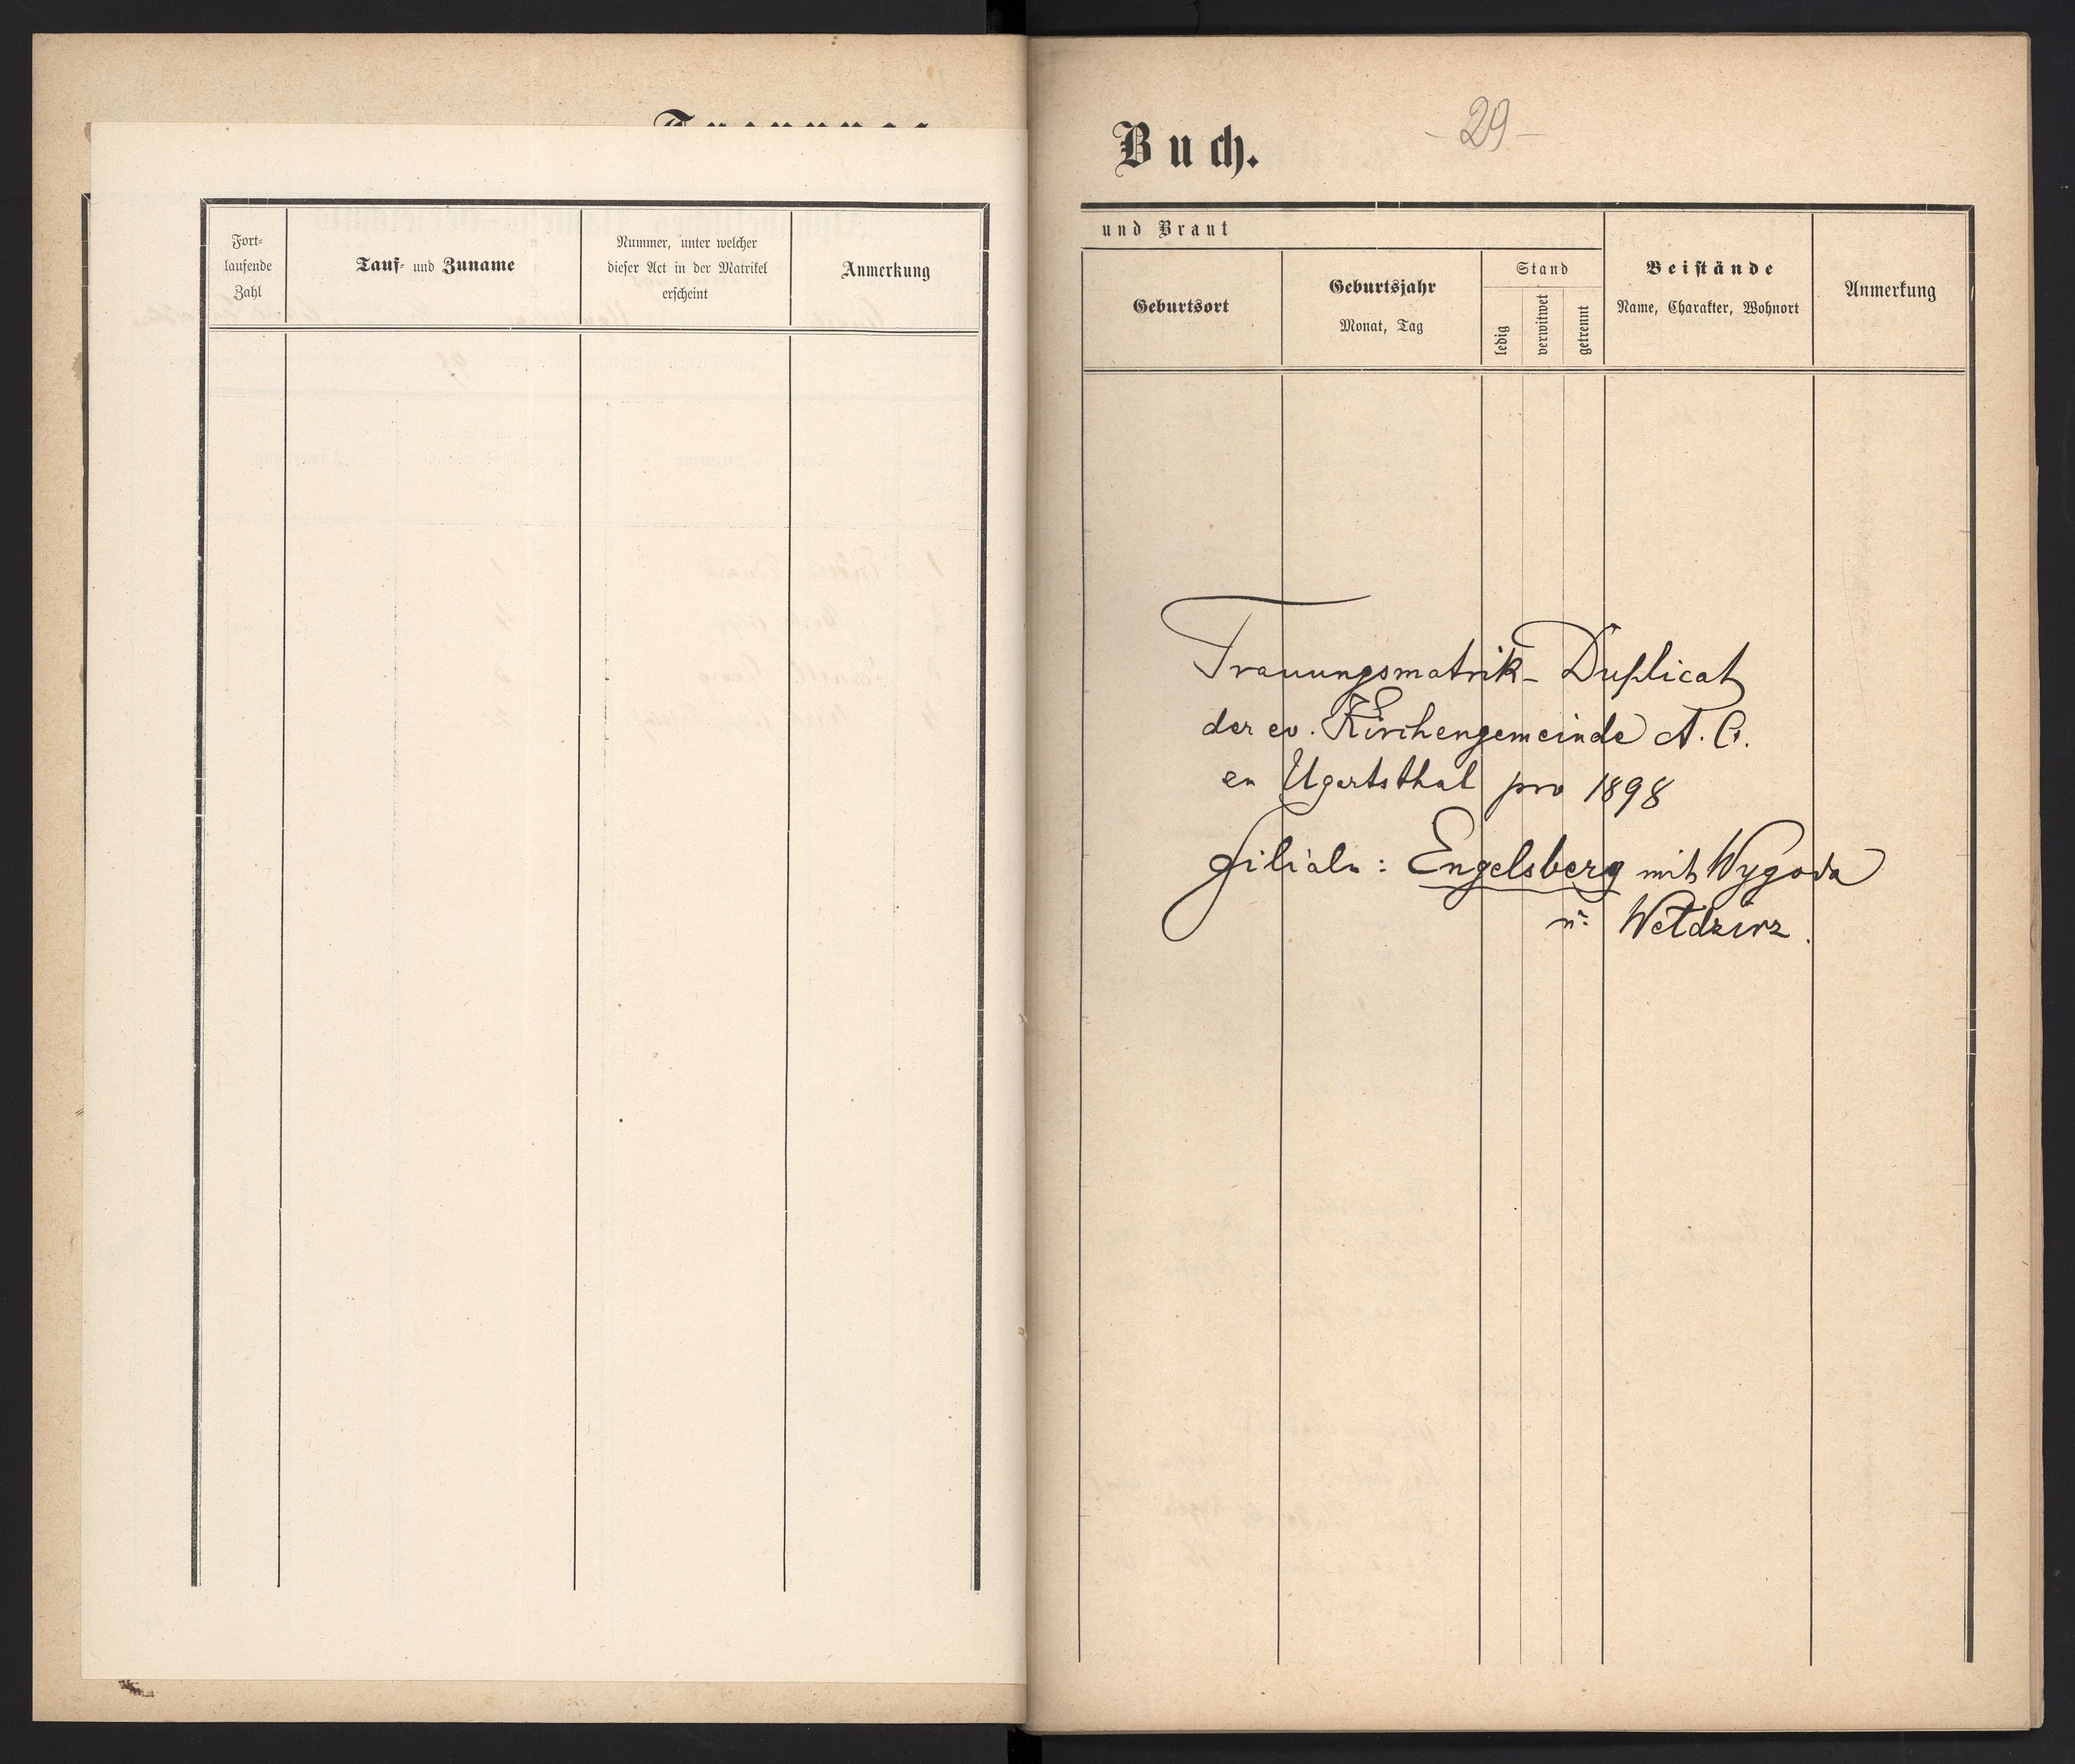 Fort-
laufende
Zahl
Tauf- und Zuname
Nummer, unter welcher
dieser Act in der Matrikel
erscheint
Anmerkung
Buch.
- 29 -
und Braut
Geburtsort
Geburtsjahr
Monat, Tag
Stand
ledig
verwitwet
getrennt
Beistände
Name, Charakter, Wohnort
Anmerkung
Trauungsmatrik- Duplicat
der ev. Kirchengemeinde A. C.
en Ugartsthal pro 1898
Filialn: Engelsberg mit Wygoda
u: Wełdzirz.